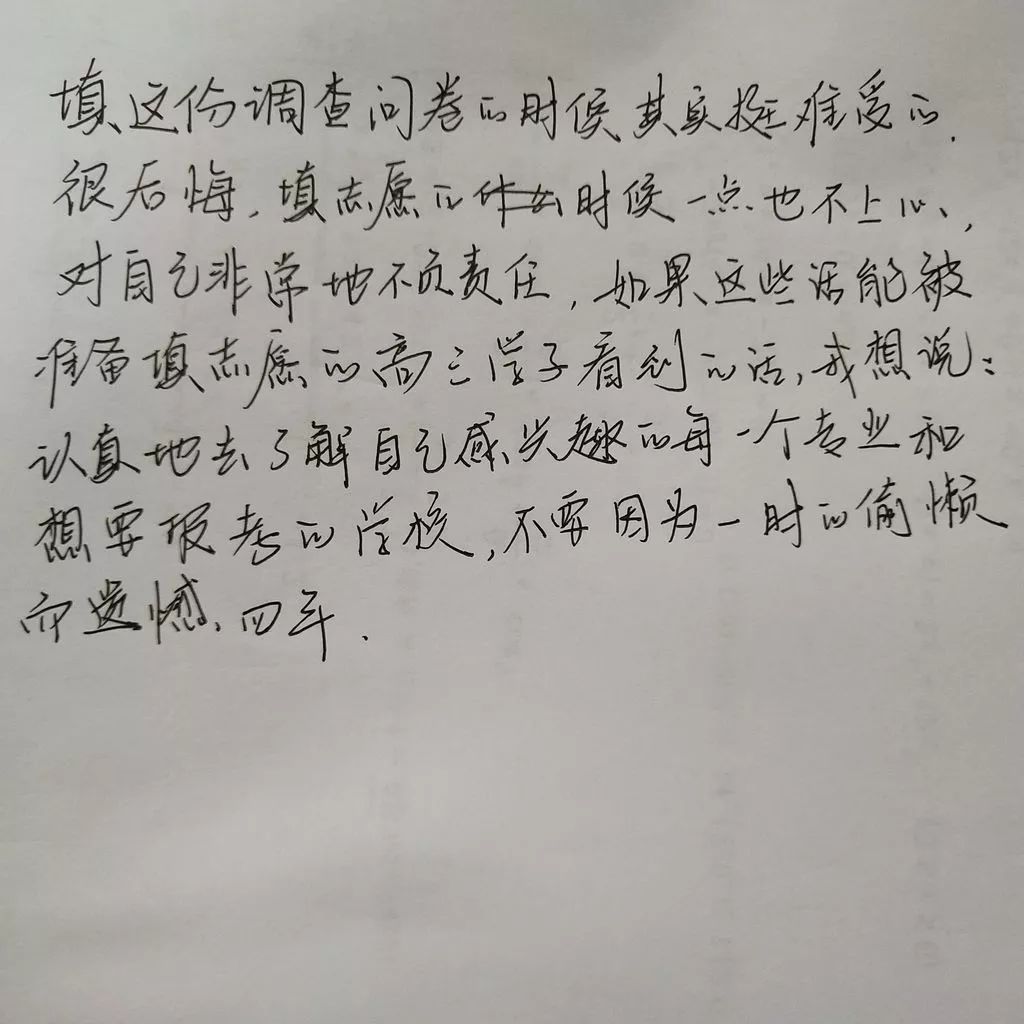 填这份调查问卷的时候其实挺难受的.
很后悔,填志愿的时候一点也不上心,
对自己非常地不负责任,如果这些话能被
准备填志愿的高三学子看到的话,我想说:
认真地去了解自己感兴趣的每一个专业和
想要报考的学校,不要因为一时的偷懒
而遗憾四年.